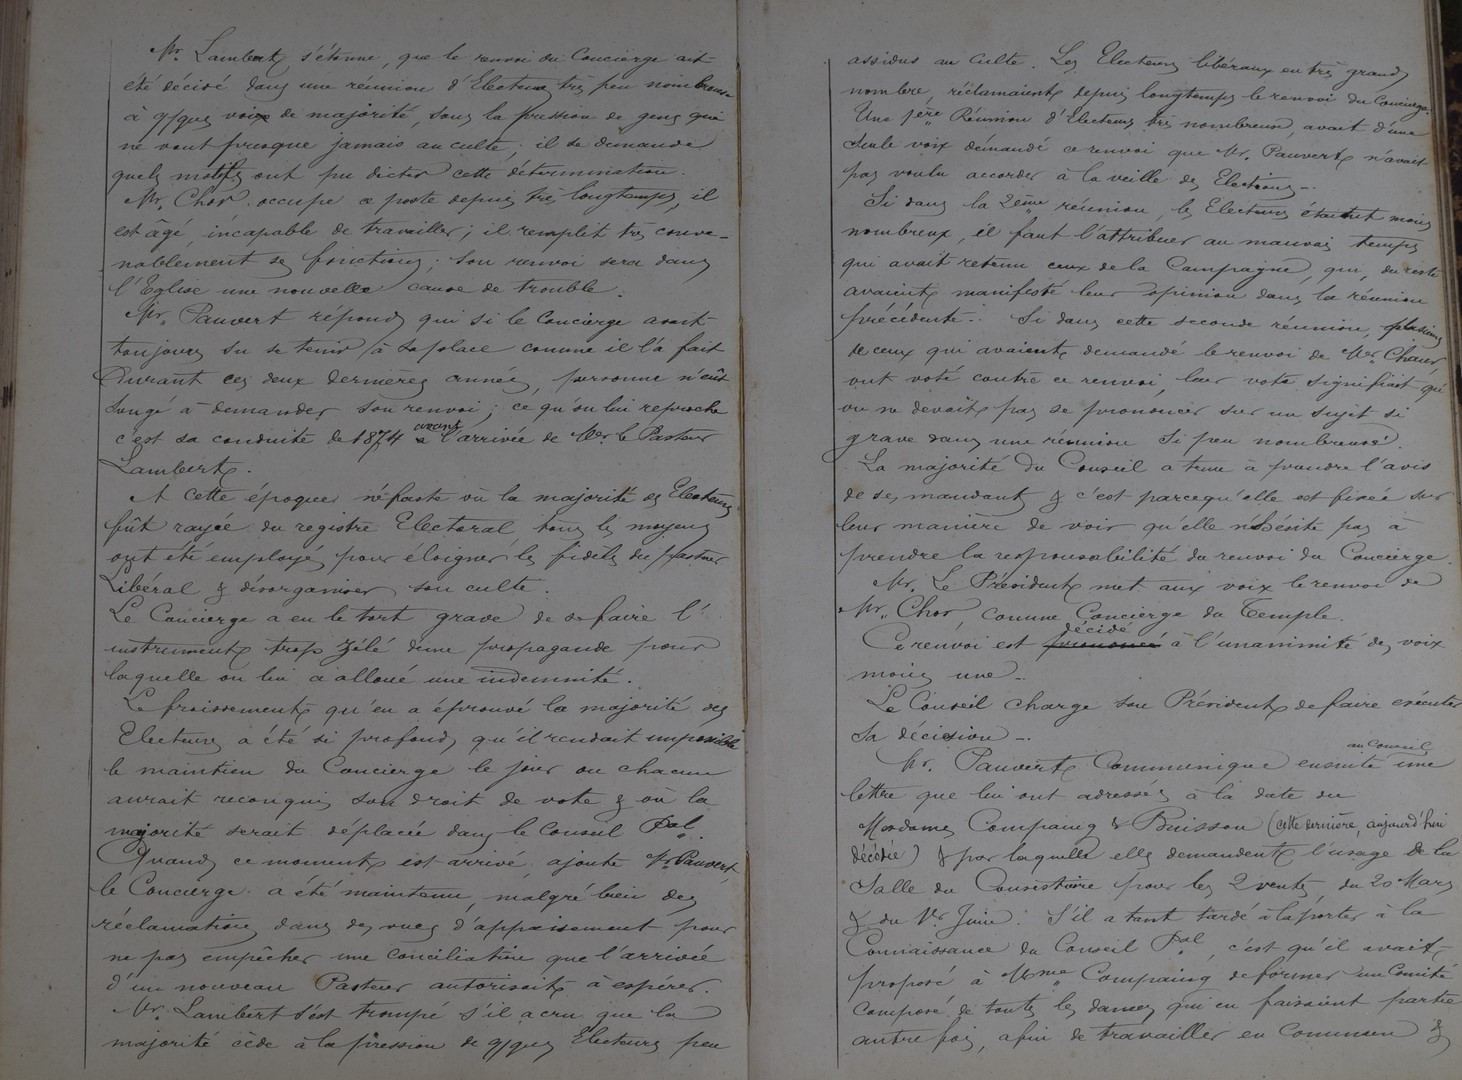 Mr. Lambert s'étonne, que le renvoi du Concierge ait
été décidé dans une réunion d'Electeurs très peu nombreuse
à qques voix de majorité, sous la pression de gens qui
ne vont presque jamais au culte; il se demande
quels motifs ont pu dicter cette détermination.
Mr. Chor occupe ce poste depuis très longtemps, il
est âgé, incapable de travailler; il remplit très conve-
nablement ses fonctions; son renvoi sera dans
l'Eglise une nouvelle cause de trouble.
Mr. Pauvert répond qui si le Concierge avait
toujours su se tenir à sa place comme il l'a fait
durant ces deux dernières années, personne n'eût
songé à demander son renvoi; ce qu'on lui reproche
c'est sa conduite de 1874 avant l'arrivée de Mr. le Pasteur
Lambert.
A cette époque néfaste où la majorité des Electeurs
fût rayée du registre Electoral tous les moyens
ont été employés pour éloigner les fidèles du pasteur
Libéral & désorganiser son culte.
Le Concierge a eu le tort grave de se faire l'
instrument trop zélé d'une propagande pour
laquelle on lui a alloué une indemnité.
Le froissement qu'en a éprouvé la majorité des
Electeurs a été si profond, qu'il rendait impossible
le maintien du Concierge le jour où chacun
aurait reconquis son droit de vote & où la
majorité serait déplacée dans le Conseil Pal.
Quand ce moment est arrivé, ajoute Mr. Pauvert,
le Concierge a été maintenu, malgré bien des
réclamations dans des vues d'appaisement pour
ne pas empêcher une conciliation que l'arrivée
d'un nouveau Pasteur autorisait à espérer.
Mr. Lambert s'est trompé s'il a cru que la
majorité cède à la pression de qques Electeurs peu
assidus au culte. Les Electeurs libéraux en très grand
nombre, réclamaient depuis longtemps le renvoi du Concierge.
Une 1ère Réunion d'Electeurs très nombreuse, avait d'une
seule voix demandé ce renvoi que Mr. Pauvert n'avait
pas voulu accorder à la veille des Elections.
Si dans la 2ème réunion, les Electeurs étaient moins
nombreux, il faut l'attribuer au mauvais temps
qui avait retenu ceux de la Campagne, qui, du reste
avaient manifesté leur opinion dans la réunion
précédente. Si dans cette seconde réunion, plusieurs
de ceux qui avaient demandé le renvoi de Mr.
ont voté contre ce renvoi, leur vote signifiait qu'
on ne devait pas se prononcer sur un sujet si
grave dans une réunion si peu nombreuse.
La majorité du Conseil a tenu à prendre l'avis
de ses mandants & c'est parcequ'elle est fixée sur
leur manière de voir qu'elle n'hésite pas à
prendre la responsabilité du renvoi du Concierge.
Mr. Le Président met aux voix le renvoi de
Mr. Chor, comme Concierge du Temple.
décidé
Ce renvoi est prononcé à l'unanimité des voix
moins une.
Le Conseil charge son Président de faire exécuter
sa décision.
au Conseil
Mr. Pauvert Communique ensuite une
lettre que lui ont adressée à la date du
Mesdames Compaing & Buisson (cette dernière, aujourd'hui
décédée) & par laquelle elles demandent l'usage de la
Salle du Consistoire pour les 2 ventes du 20 Mars
& du 1er Juin. S'il a tant tardé à la porter à la
Connaissance du Conseil Pal, c'est qu'il avait
proposé à Mme Compaing de former un Comité
composé de toutes les dames qui en faisaient partie
autre fois, afin de travailler en Commun &